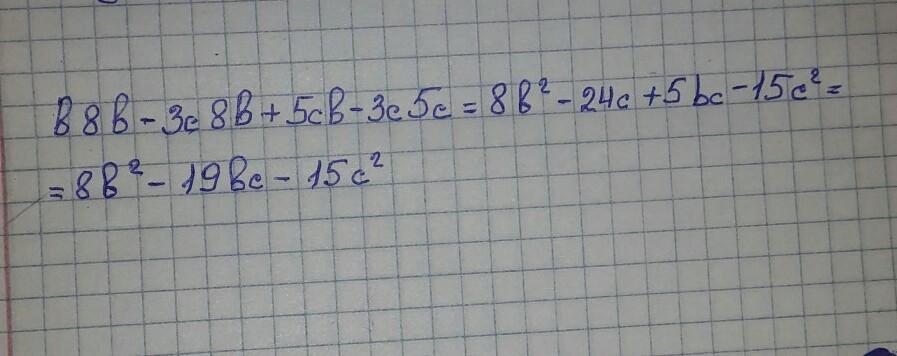 в8в-3c8в+5cв-3c5c=8в²-24c+5bc-15c²=
=8в²-19вc-15c²